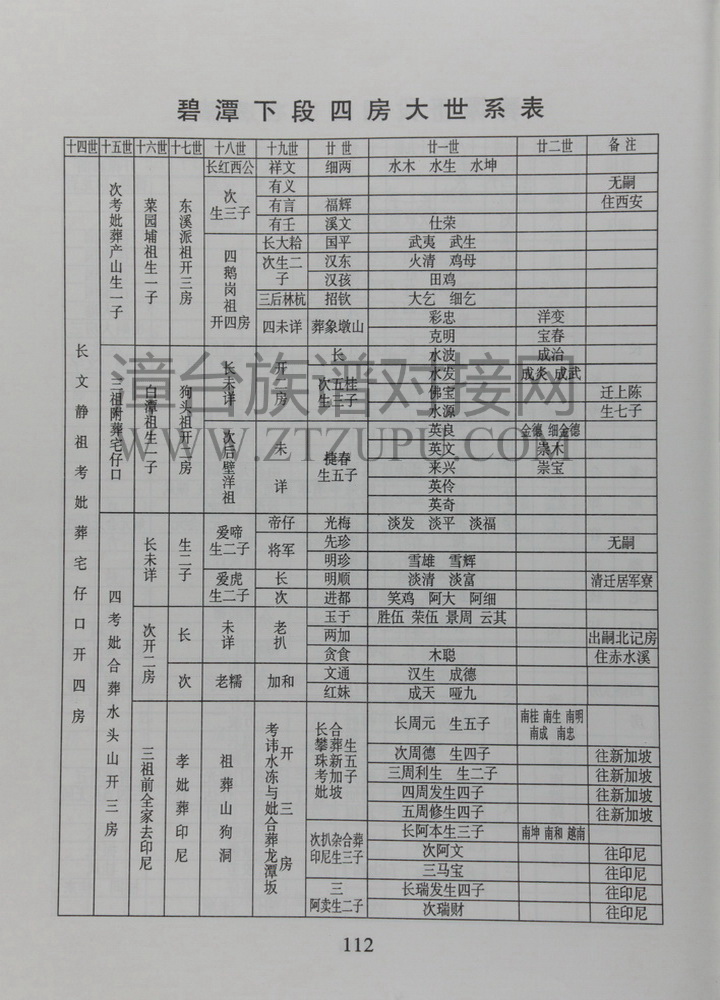 碧潭下段四房大世系表
十四世 十五世 十六世 十七世 十八世 十九世 廿世 廿一世 廿二世 备注
长文静祖考妣葬宅仔口开四房
次考妣葬产山生一子
菜园埔祖生一子
东溪派祖开三房
长红西公 祥文 细两 水木 水生 水坤
次生三子
有义 无嗣
有言 福辉 住西安
有壬 溪文 仕荣
四鹅岗祖开四房
长大粭 国平 武夷 武生
次生二子 汉东 火清 鸡母
汉孩 田鸡
三后林杭 招钦 大乞 细乞
四未详 葬象墩山 彩忠 洋变
克明 宝春
三祖附葬宅仔口
白潭祖生一子
狗头祖开二房
长未详
开二房
长 水波 成治
次五桂生三子
水发 成炎 成武
佛宝 迁上陈
水源 生七子
次后壁洋祖
未详
捷春生五子
英良 金德 细金德
英文 崇木
来兴 崇宝
英伶
英奇
四考妣合葬水头山开三房
长未详
生二子
爱啼生二子
帝仔 光梅 淡发 淡平 淡福
将军 先珍 无嗣
明珍 雪雄 雪辉
爱虎生二子
长 明顺 淡清 淡富 清迁居军寮
次 进都 笑鸡 阿大 阿细
次开二房
长 未详 老扒
玉于 胜伍 荣伍 景周 云其
两加 出嗣北记房
贪食 木聪 住赤水溪
次 老糯 加和
文通 汉生 成德
红妹 成天 哑九
三祖前全家去印尼
孝妣葬印尼
祖葬山狗洞
考讳水冻与妣合葬龙潭坂
开三房
长攀珠考妣合葬新加坡生五子
长周元 生五子 南桂 南生 南明 南成 南忠
次周德 生四子 往新加坡
三周利生 生二子 往新加坡
四周发生四子 往新加坡
五周修生四子 往新加坡
次扒杂合葬印尼生三子
长阿本生三子 南坤 南和 越南
次阿文 往印尼
三马宝 往印尼
三阿卖生二子
长瑞发生四子 往印尼
次瑞财 往印尼
漳台族谱对接网
WWW.ZTZUPU.COM
112